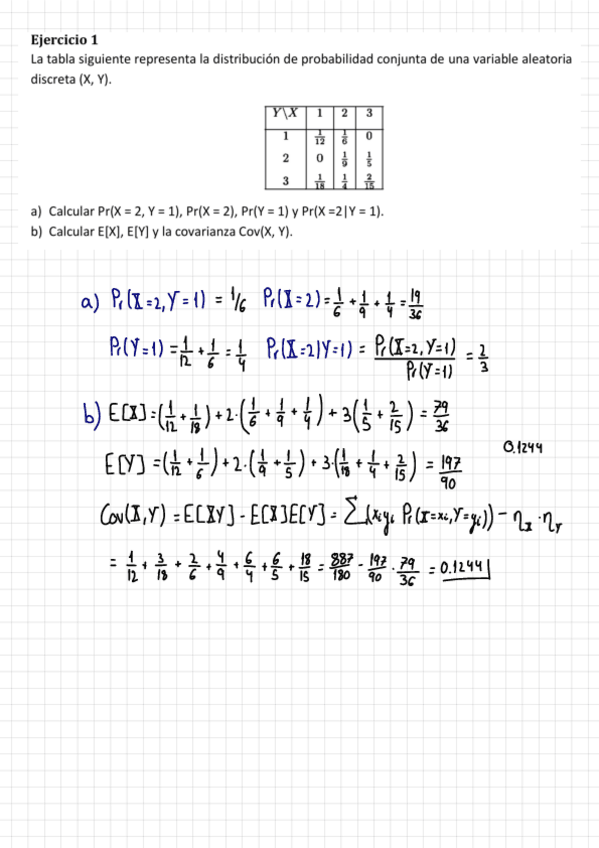 Ejercicio 1
La tabla siguiente representa la distribución de probabilidad conjunta de una variable aleatoria
discreta (X, Y).
Y\X 1 2 3
1 1/12 1/6 0
2 0 1/9 1/5
3 1/18 1/4 2/15
a) Calcular Pr(X = 2, Y = 1), Pr(X = 2), Pr(Y = 1) y Pr(X =2|Y = 1).
b) Calcular E[X], E[Y] y la covarianza Cov(X, Y).
a) Pr(X=2,Y=1) = 1/6 Pr(X=2) = 1/6 + 1/9 + 1/4 = 19/36
Pr(Y=1) = 1/12 + 1/6 = 1/4 Pr(X=2|Y=1) = Pr(X=2,Y=1)/Pr(Y=1) = 2/3
b) E[X] = (1/12 + 1/18) + 2·(1/6 + 1/9 + 1/4) + 3(1/5 + 2/15) = 79/36
0.1244
E[Y] = (1/12 + 1/6) + 2·(1/9 + 1/5) + 3·(1/18 + 1/4 + 2/15) = 197/90
Cov(X,Y) = E[XY] - E[X]E[Y] = Σ(xiyi Pr(X=xi,Y=yi)) - ηX·ηY
= 1/12 + 3/18 + 2/6 + 4/9 + 6/4 + 6/5 + 18/15 = 887/180 - 197/90 · 79/36 = 0.1244